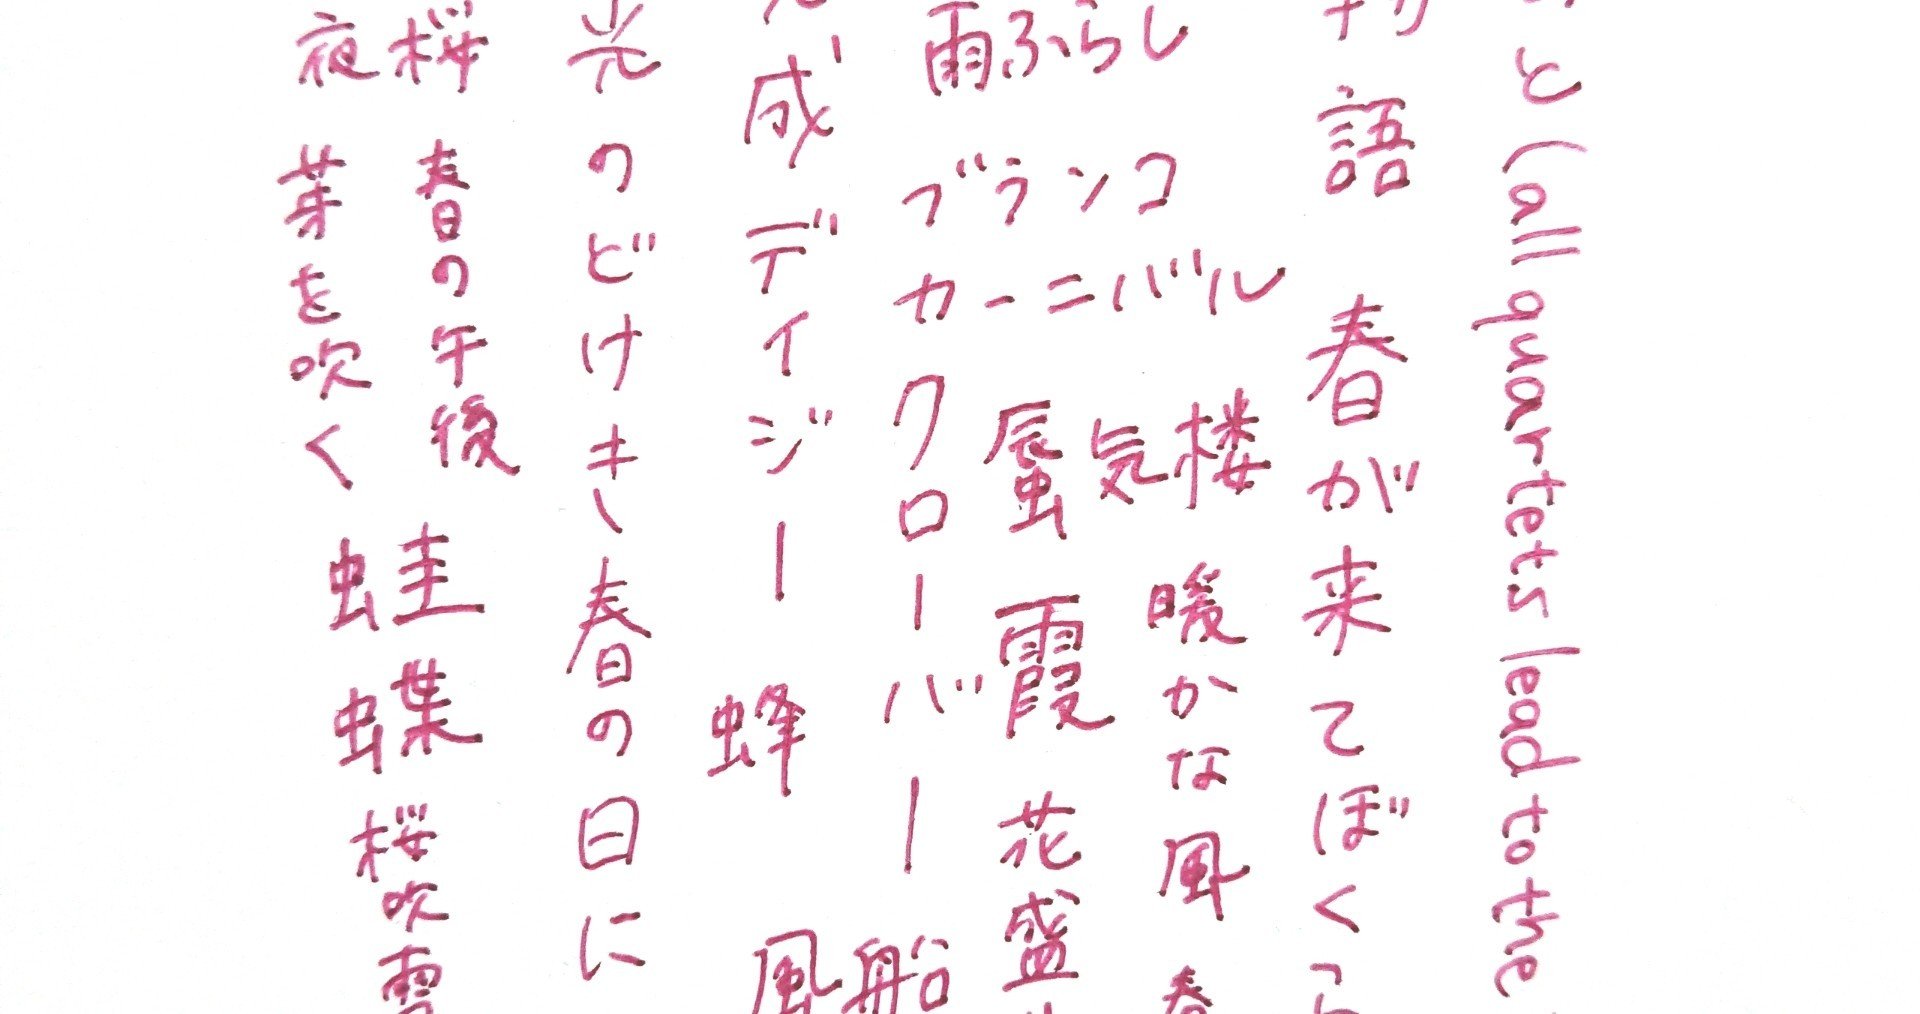 と(all quartets lead to the
語 春が来てぼくら
雨ふらし
ブランコ
カーニバル
蜃気楼
暖かな風 春
霞 花盛
クローバー
風船
成 デイジー 蜂
光のどけき 春の日に
桜 春の午後
夜 芽を吹く
蛙 蝶 桜吹雪